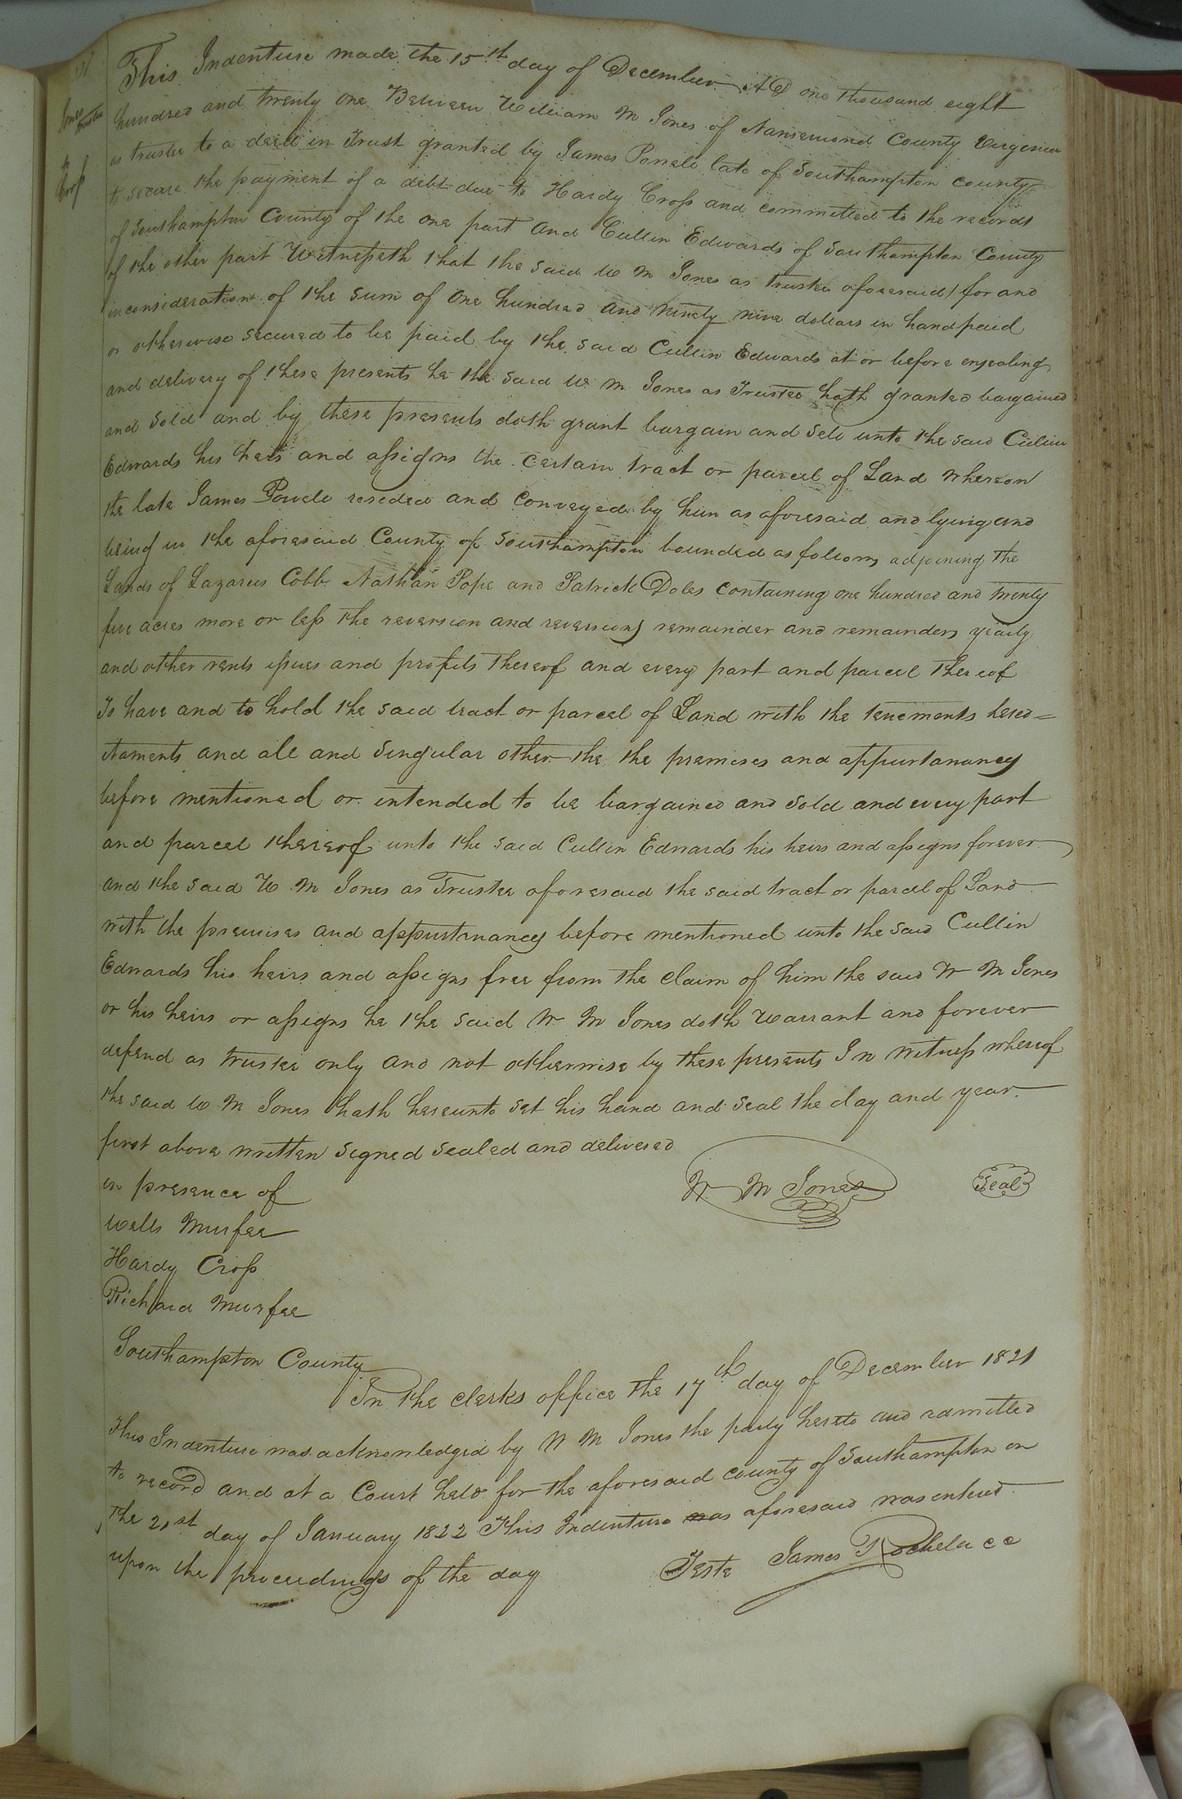 This Indenture made the 15th day of December AD one thousand eight
hundred and twenty one Between William M Jones of Nansemond County Virginia
as trustee to a deed in Trust granted by James Powell late of Southampton county
to secure the payment of a debt due to Hardy Cross and committed to the records
of Southampton County of the one part and Cullin Edwards of Southampton County
of the other part Witnesseth that the said W M Jones as trustee aforesaid for and
inconsideration of the sum of one hundred and ninety nine dollars in hand paid
or otherwise secured to be paid by the said Cullin Edwards at or before ensealing
and delivery of these presents he the said W M Jones as Trustee hath granted bargained
and sold and by these presents doth grant bargain and sell unto the said Cullin
Edwards his heirs and assigns the certain tract or parcel of Land whereon
the late James Powell reseded and conveyed by him as aforesaid and lying and
being in the aforesaid County of Southampton bounded as follows adjoining the
Lands of Lazarus Cobb Nathan Pope and Patrick Doles containing one hundred and twenty
five acres more or less the reversion and reversions remainder and remainders yearly
and other rents issues and profits thereof and every part and parcel thereof
To have and to hold the said tract or parcel of Land with the tenements hered=
itaments and all and singular other the the premises and appurtanances
before mentioned or intended to be bargained and sold and every part
and parcel thereof unto the said Cullin Edwards his heirs and assigns forever
and the said W M Jones as Trustee aforesaid the said tract or parcel of Land
with the premises and appurtenances before mentioned unto the said Cullin
Edwards his heirs and assigns free from the claim of him the said W M Jones
or his heirs or assigns he the said W M Jones doth Warrant and forever
defend as trustee only and not otherwise by these presents In witness whereof
the said W M Jones hath hereunto set his hand and seal the day and year
first above written signed sealed and delivered
in presence of
W M Jones Seal
Wells Murfee
Hardy Cross
Richard Murfee
Southampton County
In the clerks office the 17th day of December 1821
This Indenture was acknowledged by W M Jones the party hereto and admitted
to record and at a Court held for the aforesaid county of Southampton on
the 21st day of January 1822 This Indenture was as aforesaid was entered
upon the proceedings of the day
Teste James Rochelle cc